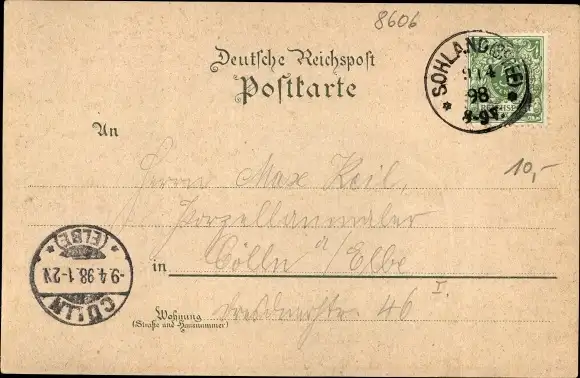 8606
Deutsche Reichspost
Postkarte
SOHLAND (SPREE)
9 4
98
8-9V.
REICHSPOST
An
Herrn Max Keil,
10,-
Porzellanmaler
in Cölln a/Elbe
46 I.
Wohnung
(Straße und Hausnummer)
CÖLLN
9.4.98.1-2N
(ELBE)